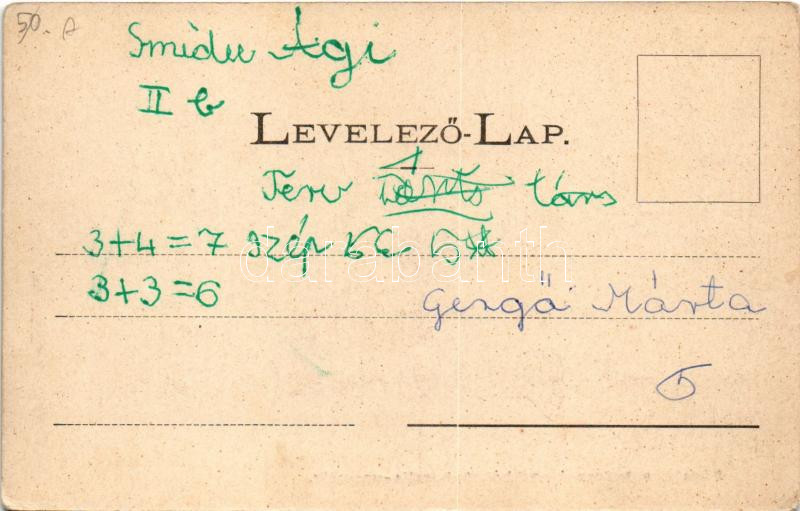 50. A
Smidu Ági
II b
LEVELEZŐ-LAP.
1
Terv társ
3+4=7 szép
3+3=6
darabanth
Gergő Márta
5